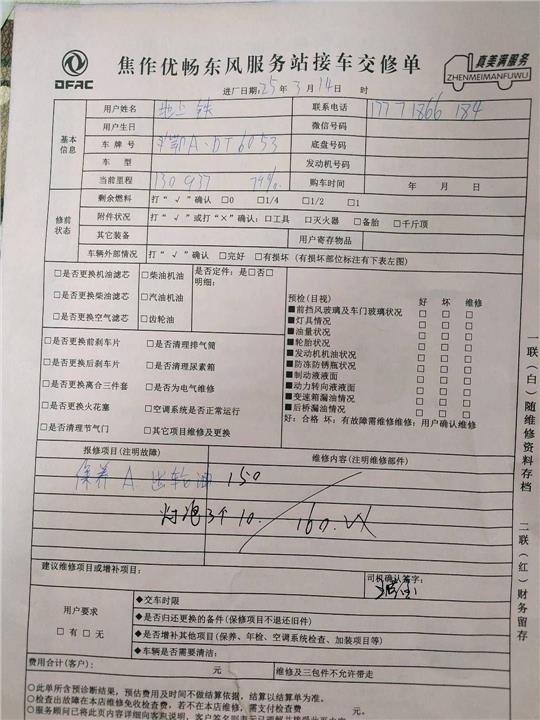 DFAC
焦作优畅东风服务站接车交修单
真美满服务
ZHENMEIMANFUWU
进厂日期: 25 年 3 月 14 日 时
基本信息
用户姓名 地上铁 联系电话 17771866184
用户生日 微信号码
车牌号 A·DT6053 底盘号码
车型 发动机号码
当前里程 130937 74% 购车时间 年 月 日
修前状态
剩余燃料 打“√”确认 □0 □1/4 □1/2 □1
附件状况 打“√”或打“×”确认:□工具 □灭火器 □备胎 □千斤顶
其它装备 用户寄存物品
车辆外部情况 打“√”确认 □完好 □有损坏(有损坏部位标注有下表左图)
□是否更换机油滤芯 □柴油机油 是否定件:是□否□
明细:
□是否更换柴油滤芯 □汽油机油
□是否更换空气滤芯 □齿轮油
预检(目视) 好 坏 维修
■前挡风玻璃及车门玻璃状况 □ □ □
■灯具情况 □ □ □
■油量状况 □ □ □
■轮胎状况 □ □ □
■发动机机油状况 □ □ □
■防冻防锈瓶状况 □ □ □
■制动液液面 □ □ □
■动力转向液液面 □ □ □
■变速箱漏油情况 □ □ □
■后桥漏油情况 □ □ □
好:合格 坏:有故障需维修维修:用户确认维修
□是否更换前刹车片 □是否清理排气筒
□是否更换后刹车片 □是否清理尿素箱
□是否更换离合三件套 □是否为电气维修
□是否更换火花塞 □空调系统是否正常运行
□是否清理节气门 □其它项目维修及更换
报修项目(注明故障) 维修内容(注明维修部件)
保养A 齿轮油 150
灯泡3个10. 160.
建议维修项目或增补项目:
司机确认签字:
用户要求
□有 □无
◆交车时限
◆是否归还更换的备件(保修项目不退还旧件)
◆是否增补其他项目(保养、年检、空调系统检查、加装项目等)
◆车辆是否需要清洁:
费用合计(客户): 元 维修及三包件不允许带走
○此单所含预诊断结果,预估费用及时间不做结算依据,结算以结算单为准。
○检查出故障在本店维修免收检查费,若不在本店维修,需支付检查费 元。
○服务顾问已将此页内容详细向客户说明,客户签名则表示已理解并接受此页内容
一联(白)随维修资料存档
二联(红)财务留存